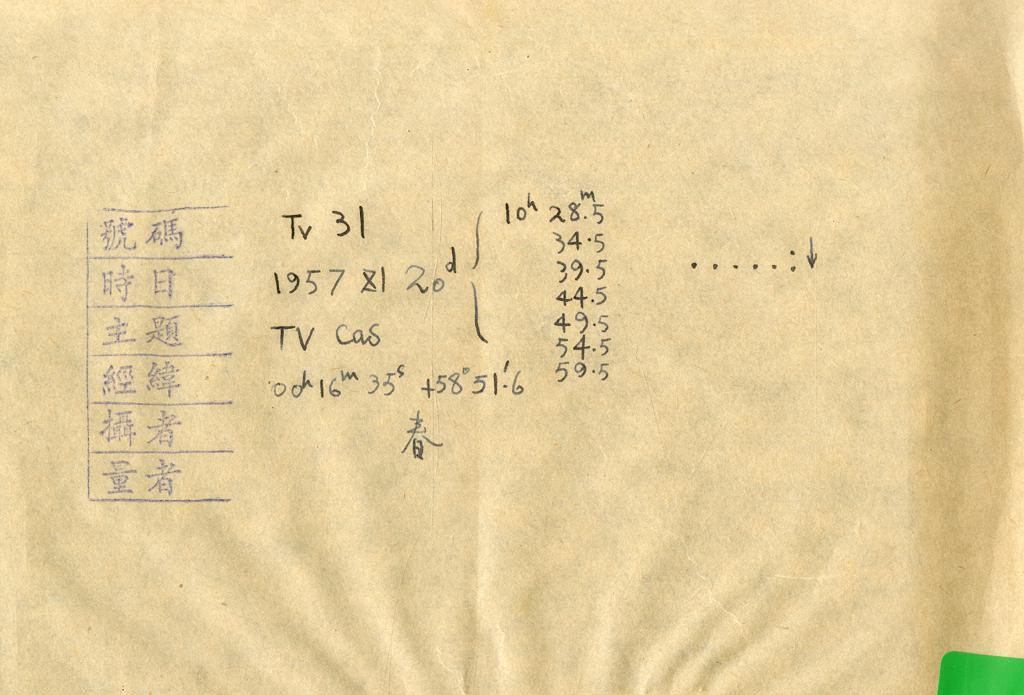 號碼 Tv 31
時日 1957 XI 20d
10h 28m.5
34.5
39.5
44.5
49.5
54.5
59.5
主題 TV Cas
經緯 00h 16m 35s +58°51'.6
攝者 春
量者